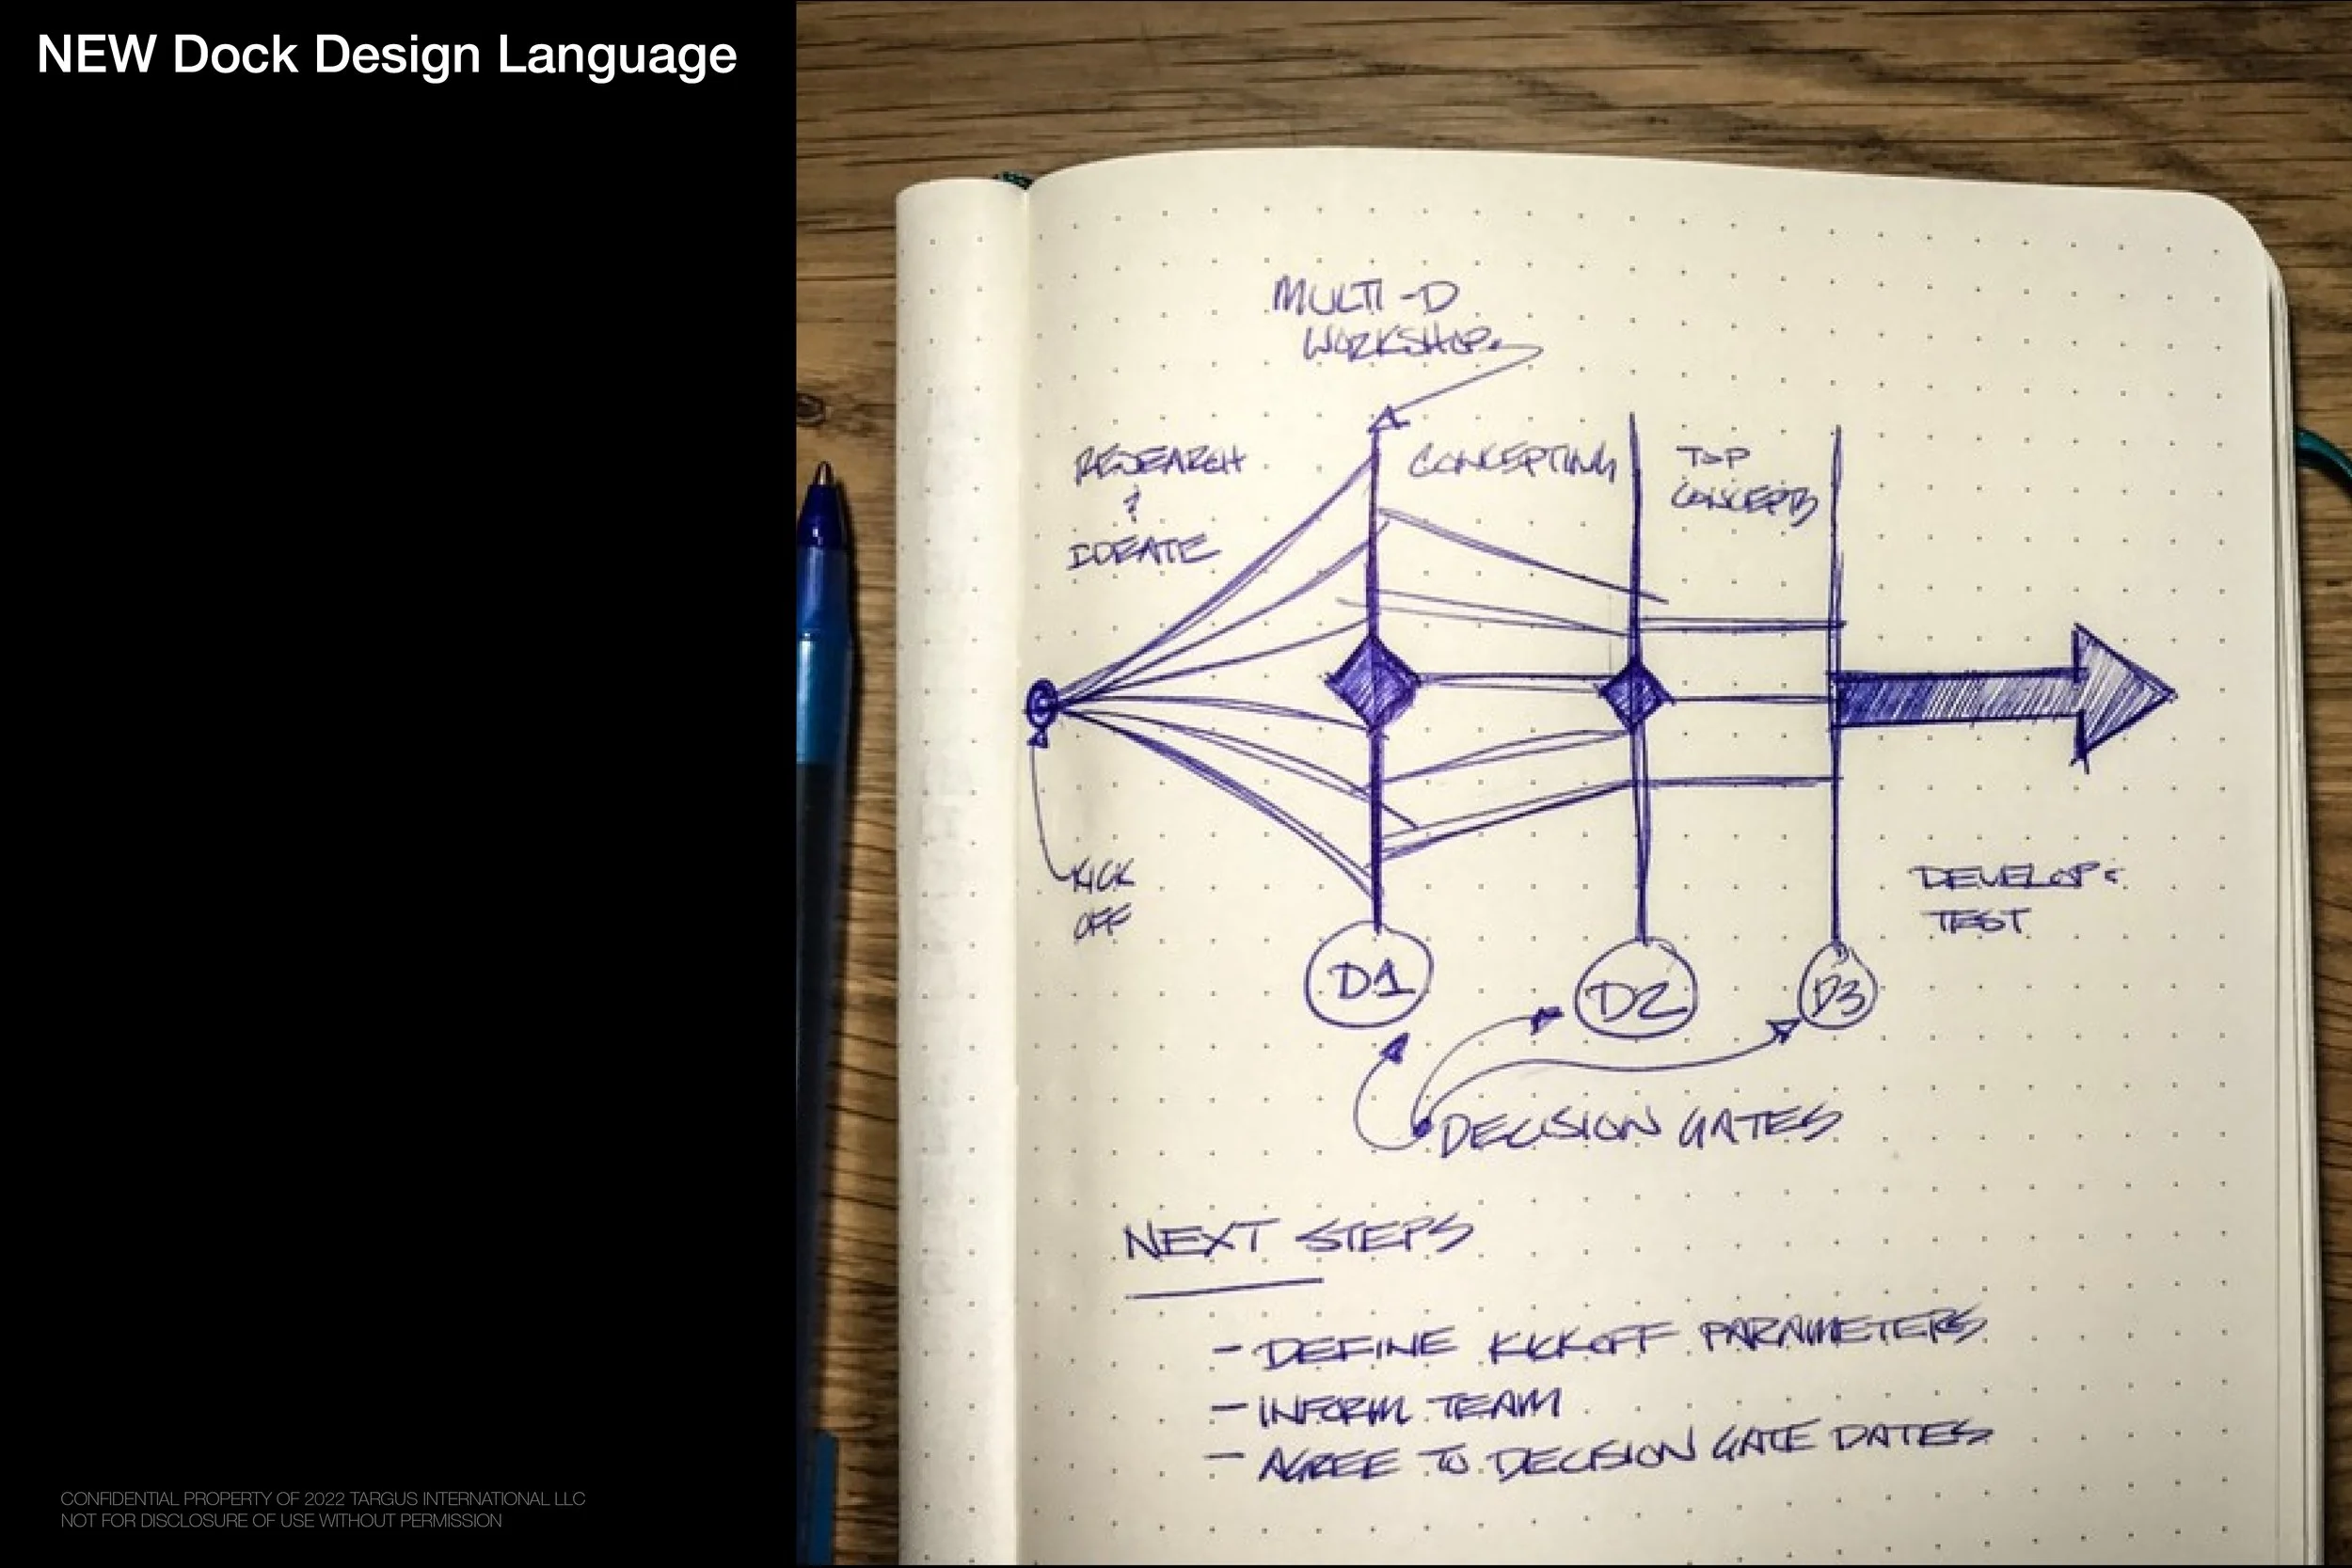 NEW Dock Design Language
MULTI-D
WORKSHOP
RESEARCH
&
IDEATE
CONCEPTING
TOP
CONCEPTS
KICK
OFF
DEVELOP &
TEST
D1
D2
D3
DECISION GATES
NEXT STEPS
- DEFINE KICKOFF PARAMETERS
- INFORM TEAM
- AGREE TO DECISION GATE DATES
CONFIDENTIAL PROPERTY OF 2022 TARGUS INTERNATIONAL LLC
NOT FOR DISCLOSURE OF USE WITHOUT PERMISSION